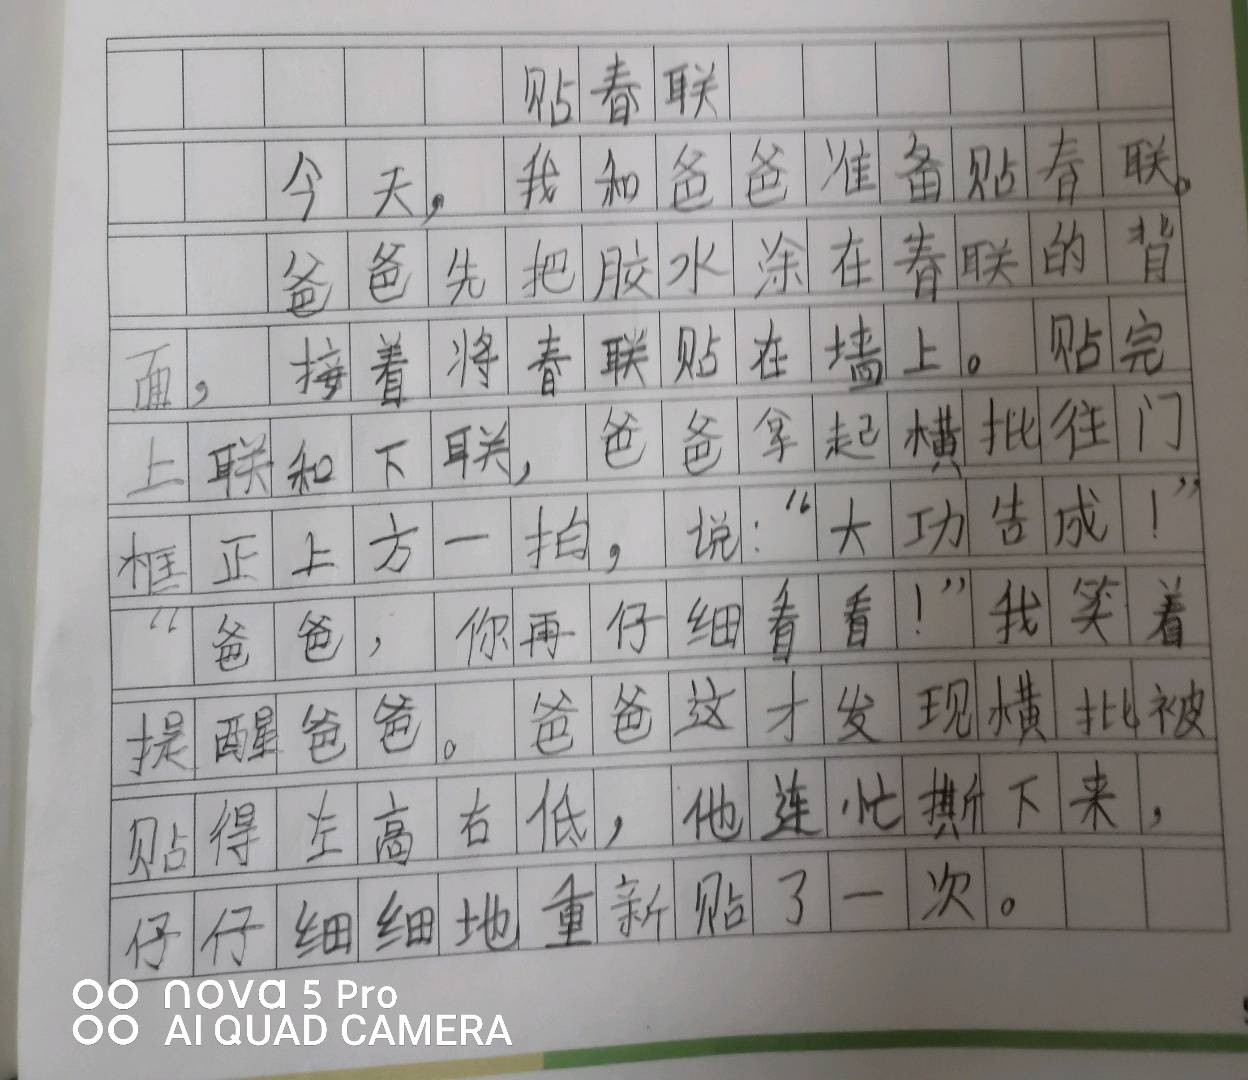 贴春联
今天，我和爸爸准备贴春联。
爸爸先把胶水涂在春联的背
面，接着将春联贴在墙上。贴完
上联和下联，爸爸拿起横批往门
框正上方一拍，说：“大功告成！”
“爸爸，你再仔细看看！”我笑着
提醒爸爸。爸爸这才发现横批被
贴得左高右低，他连忙撕下来，
仔仔细细地重新贴了一次。
nova 5 Pro
AI QUAD CAMERA